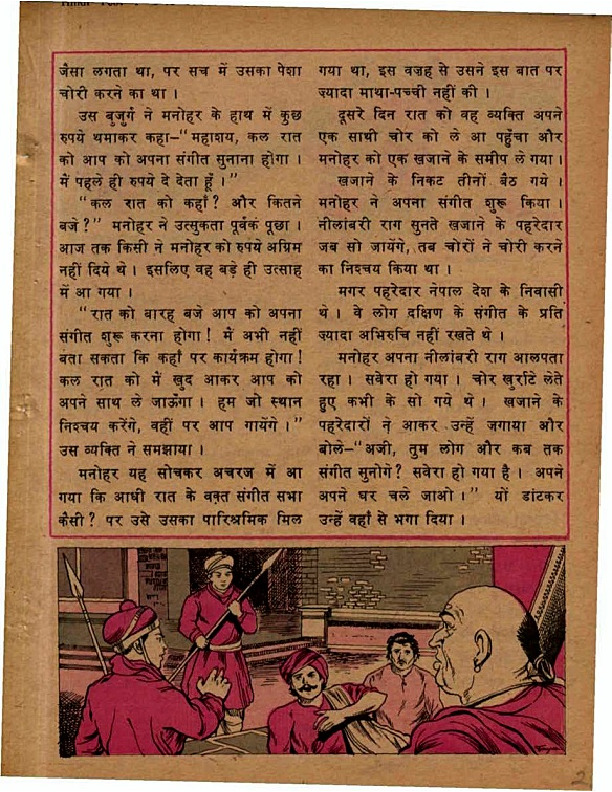 जैसा लगता था, पर सच में उसका पेशा
चोरी करने का था ।
उस बुजुर्ग ने मनोहर के हाथ में कुछ
रुपये थमाकर कहा–“महाशय, कल रात
को आप को अपना संगीत सुनाना होगा ।
मैं पहले ही रुपये दे देता हूँ ।”
“कल रात को कहाँ? और कितने
बजे?” मनोहर ने उत्सुकता पूर्वक पूछा ।
आज तक किसी ने मनोहर को रुपये अग्रिम
नहीं दिये थे । इसलिए वह बड़े ही उत्साह
में आ गया ।
“रात को बारह बजे आप को अपना
संगीत शुरू करना होगा! मैं अभी नहीं
बता सकता कि कहाँ पर कार्यक्रम होगा!
कल रात को में खुद आकर आप को
अपने साथ ले जाऊँगा । हम जो स्थान
निश्चय करेंगे, वहीं पर आप गायेंगे ।”
उस व्यक्ति ने समझाया ।
मनोहर यह सोचकर अचरज में आ
गया कि आधी रात के वक्त संगीत सभा
कैसी? पर उसे उसका पारिश्रमिक मिल
गया था, इस वजह से उसने इस बात पर
ज्यादा माथा-पच्ची नहीं की ।
दूसरे दिन रात को वह व्यक्ति अपने
एक साथी चोर को ले आ पहुँचा और
मनोहर को एक खजाने के समीप ले गया ।
खजाने के निकट तीनों बैठ गये ।
मनोहर ने अपना संगीत शुरू किया ।
नीलांबरी राग सुनते खजाने के पहरेदार
जब सो जायेंगे, तब चोरों ने चोरी करने
का निश्चय किया था ।
मगर पहरेदार नेपाल देश के निवासी
थे । वे लोग दक्षिण के संगीत के प्रति
ज्यादा अभिरुचि नहीं रखते थे ।
मनोहर अपना नीलांबरी राग आलपता
रहा । सवेरा हो गया । चोर खुर्राटे लेते
हुए कभी के सो गये थे । खजाने के
पहरेदारों ने आकर उन्हें जगाया और
बोले–“अजी, तुम लोग और कब तक
संगीत सुनोगे? सवेरा हो गया है । अपने
अपने घर चले जाओ ।” यों डांटकर
उन्हें वहाँ से भगा दिया ।
2